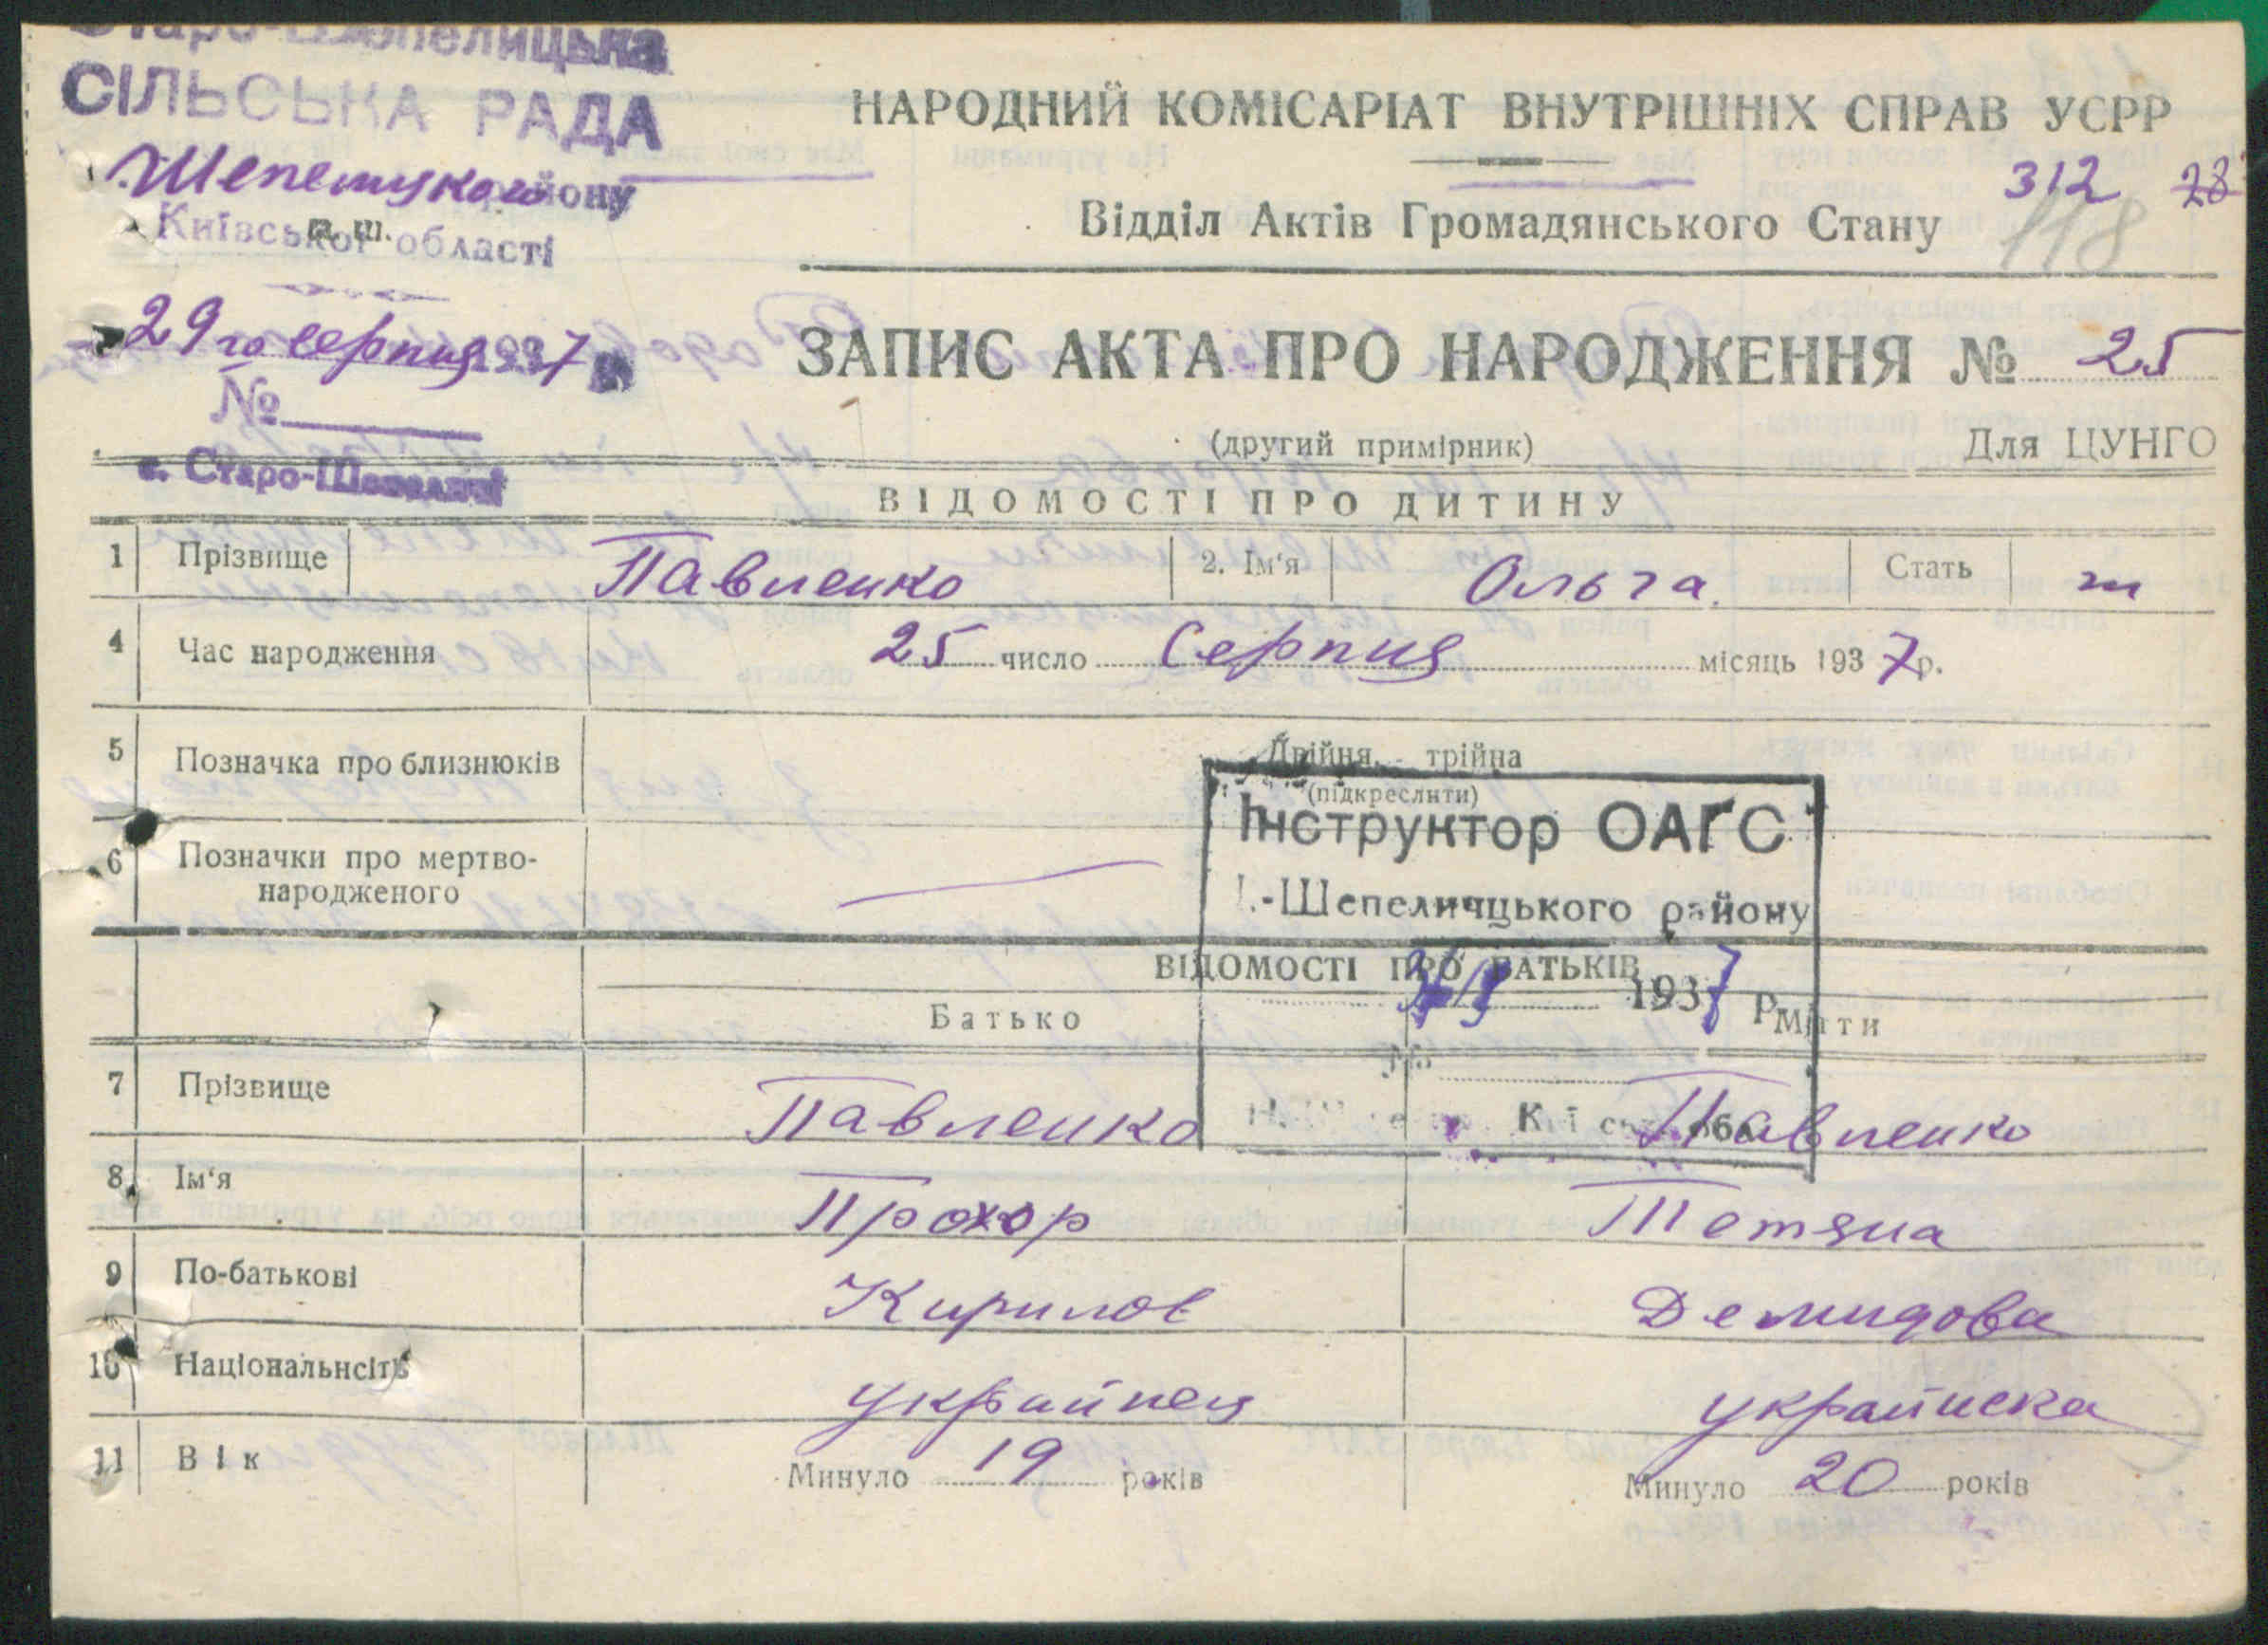 Старо-Шепелицька
СІЛЬСЬКА РАДА
району
Київської області
29го серпня 1937 р
№
с. Старо-Шепеличі
НАРОДНИЙ КОМІСАРІАТ ВНУТРІШНІХ СПРАВ УСРР
312 28
118
Відділ Актів Громадянського Стану
ЗАПИС АКТА ПРО НАРОДЖЕННЯ № 25
(другий примірник) Для ЦУНГО
ВІДОМОСТІ ПРО ДИТИНУ
1 Прізвище Павленко 2. Ім'я Ольга Стать ж
4 Час народження 25 число Серпня місяць 1937р.
5 Позначка про близнюків Двійня - трійна
(підкреслити)
Інструктор ОАГС
6 Позначки про мертво-
народженого
-Шепеличцького району
ВІДОМОСТІ ПРО БАТЬКІВ
1937 р.
Батько Мати
№
7 Прізвище Павленко Павленко
8 Ім'я Прохор Тетяна
9 По-батькові Кирилов Демидова
10 Національнсіть українец українска
11 Вік Минуло 19 років Минуло 20 років